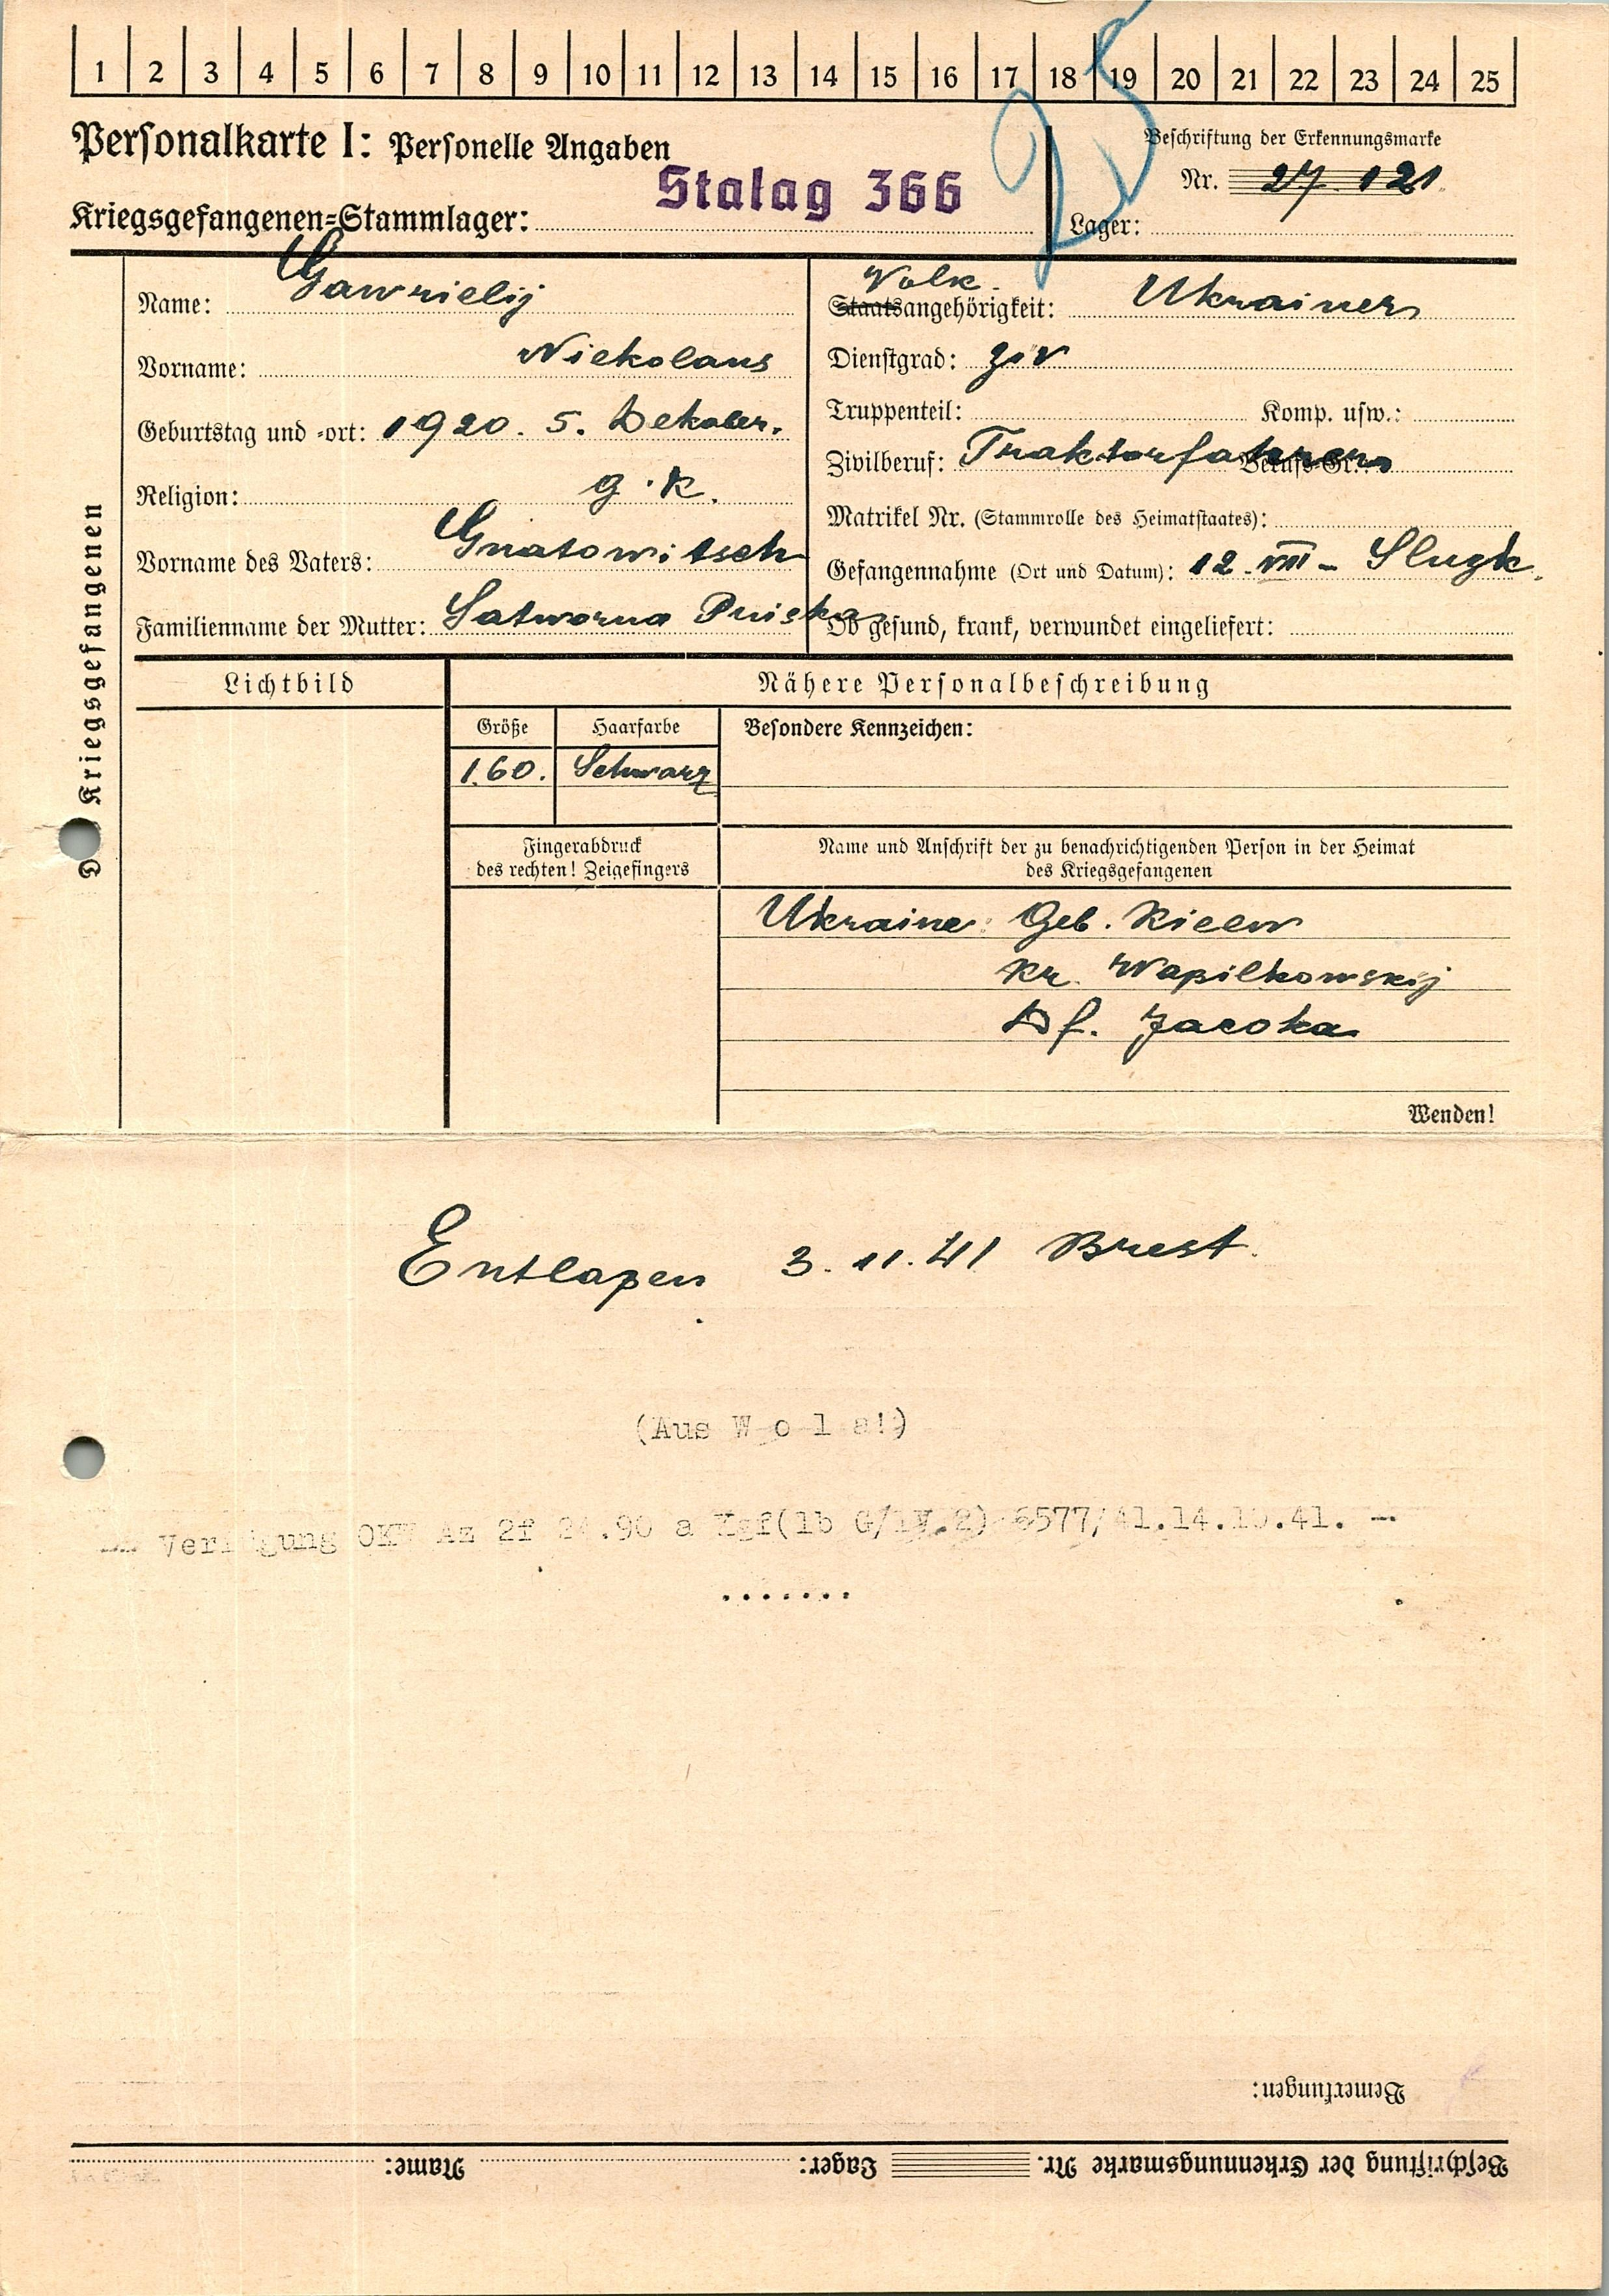 1 2 3 4 5 6 7 8 9 10 11 12 13 14 15 16 17 18 19 20 21 22 23 24 25
Personalkarte I: Personelle Angaben
Beschriftung der Erkennungsmarke
Stalag 366
Nr. 27 121
Kriegsgefangenen-Stammlager:
Lager:
Des Kriegsgefangenen
Name: Gawrielij
Vorname: Niekolaus
Geburtstag und -ort: 1920. 5. Dekaber.
Religion: g. k.
Vorname des Vaters: Gnatowitsch
Familienname der Mutter: Satworna
Volk.
Staatsangehörigkeit: Ukrainer
Dienstgrad: ziv
Truppenteil: Komp. usw.:
Zivilberuf: Traktorfahrer Berufs-Gr.:
Matrikel Nr. (Stammrolle des Heimatstaates):
Gefangennahme (Ort und Datum): 12. VIII - Sluzk.
Ob gesund, krank, verwundet eingeliefert:
Lichtbild
Nähere Personalbeschreibung
Größe Haarfarbe Besondere Kennzeichen:
1.60. Schwarz
Fingerabdruck
des rechten! Zeigefingers
Name und Anschrift der zu benachrichtigenden Person in der Heimat
des Kriegsgefangenen
Ukraine: Geb. Kieew
Kr. Waßilkowskij
Df. Jacoka
Wenden!
Entlaßen 3. 11. 41 Brest.
(Aus W o l a!)
Verfügung OKW Az 2f 24.90 a Kgf(1b G/IV.2) 6577/41.14.10.41. --
.......
Bemerkungen:
Beschriftung der Erkennungsmarke Nr. Lager: Name: